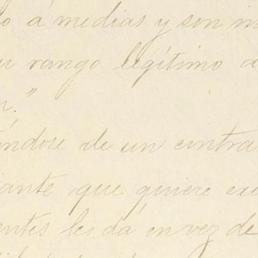 o á medias y son in
u rango legítimo a
n."
éndose de un contra
iante que quiere ex
entes les dá en vez de